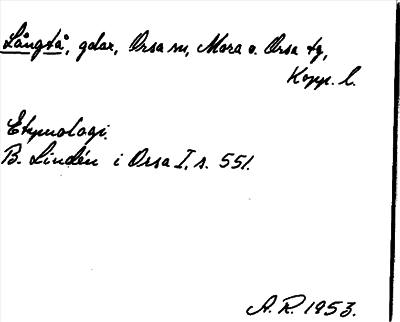 Långtå, gdar, Orsa sn, Mora o. Orsa tg,
Kopp. l.
Etymologi.
B. Lindén i Orsa I, s. 551.
A. R. 1953.